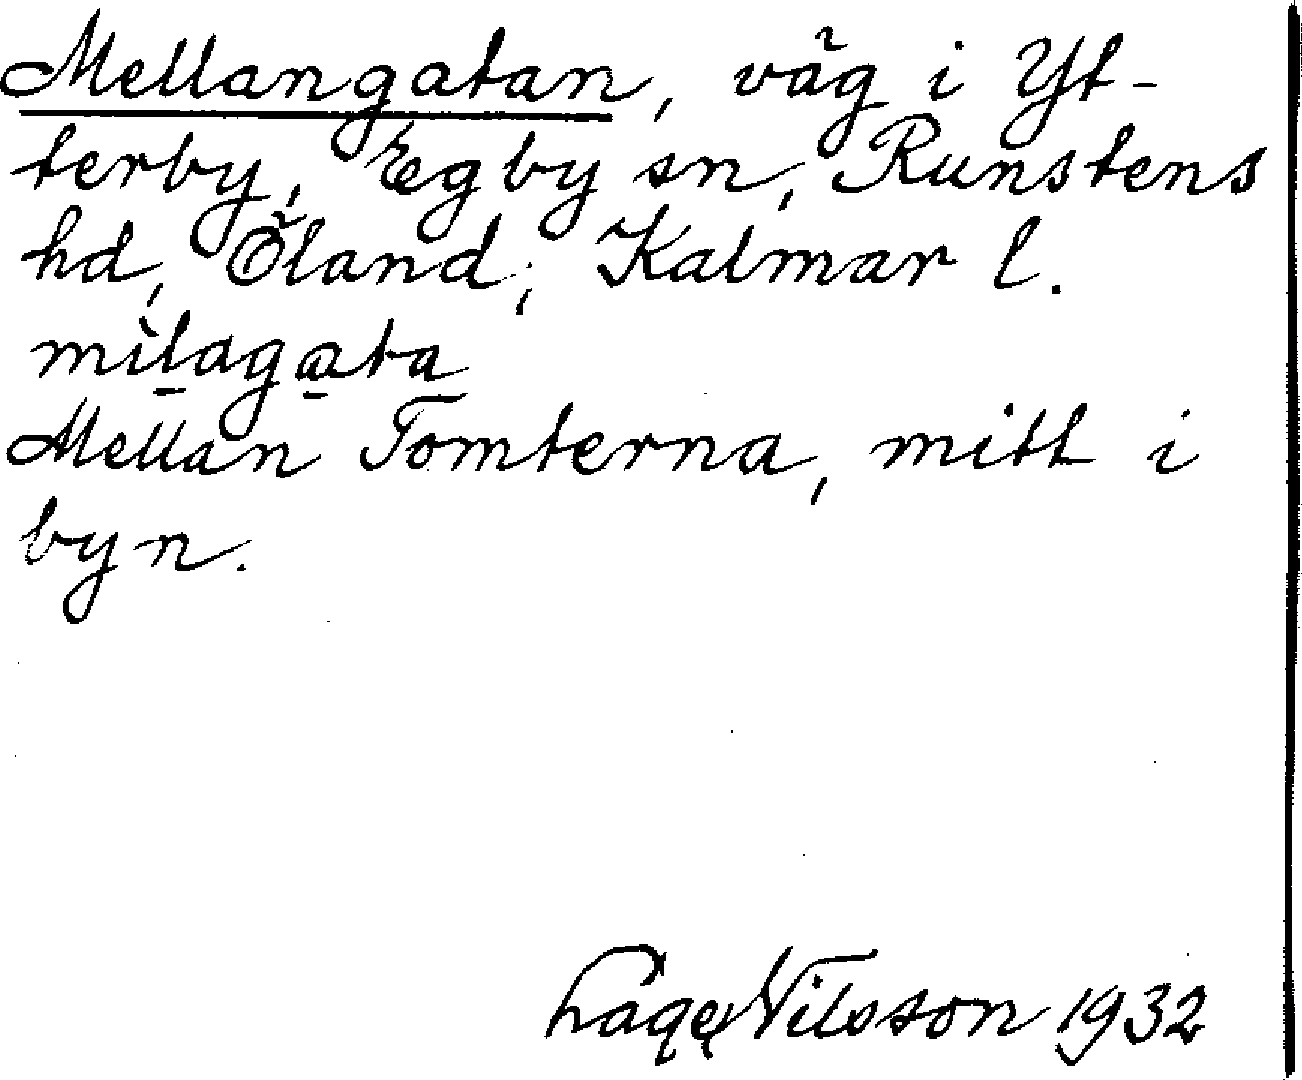 Mellangatan, väg i Yt-
terby, Egby sn, Runstens
hd, Öland, Kalmar l.
mìlagata
Mellan Tomterna, mitt i
byn.
Nilsson 1932